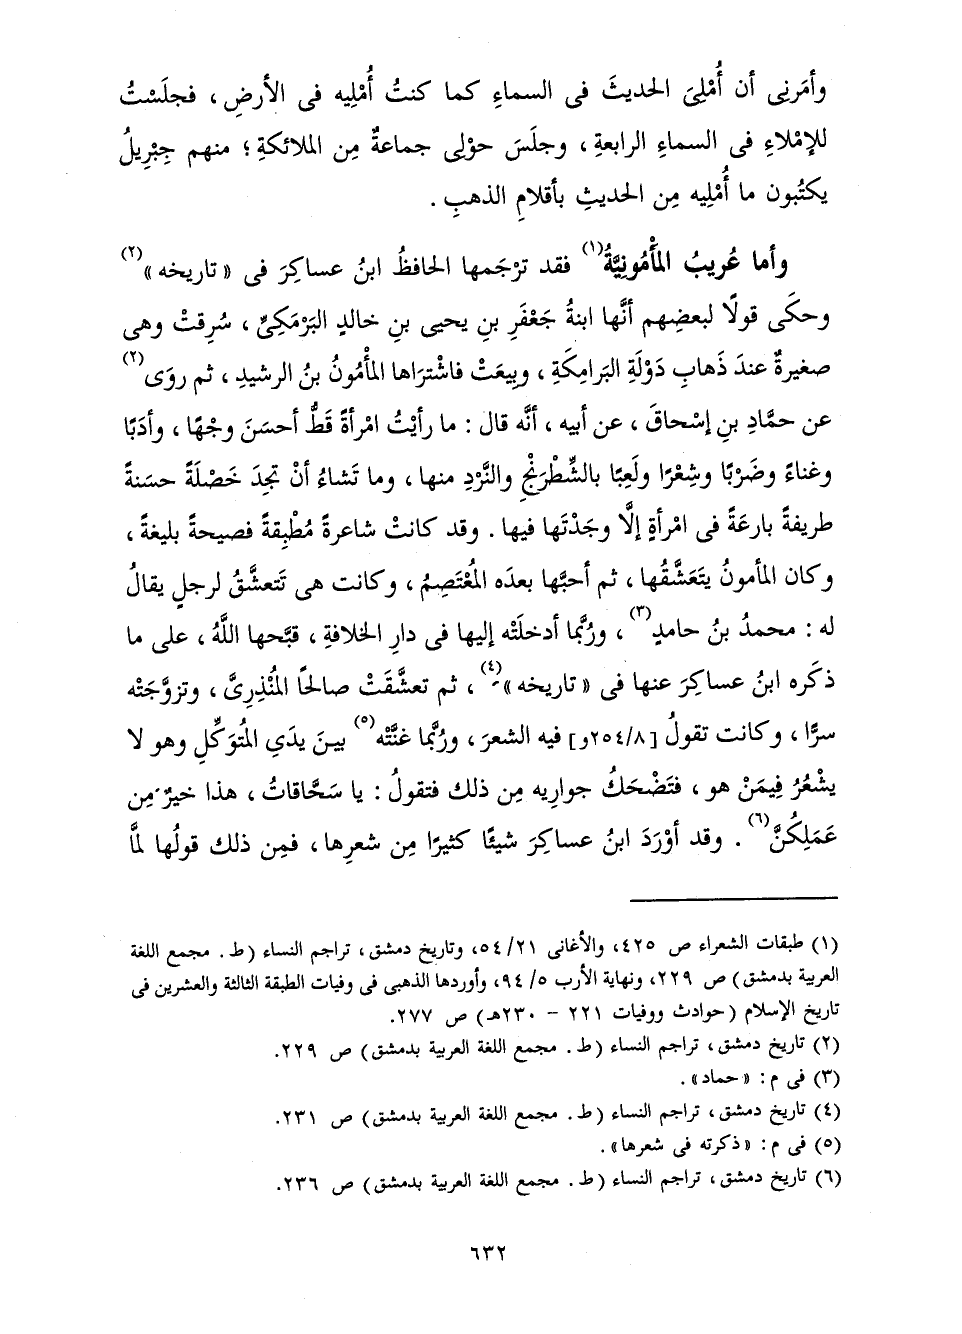 وأمَرنى أن أُمْلِىَ الحديثَ فى السماءِ كما كنتُ أُمْلِيه فى الأرضِ ، فجلَسْتُ
للإمْلاءِ فى السماءِ الرابعةِ ، وجلَسَ حوْلِى جماعةٌ مِن الملائكةِ ؛ منهم جِبْرِيلُ
يكتُبون ما أُمْلِيه مِن الحديثِ بأقلامِ الذهبِ .
وأما عُريبُ المَأْمُونِيَّةُ(١) فقد ترْجَمها الحافظُ ابنُ عساكِرَ فى « تاريخه »(٢)
وحكَى قولًا لبعضِهم أنَّها ابنةُ جَعْفَرِ بنِ يحيى بنِ خالدٍ البَرْمَكِىِّ ، سُرِقتْ وهى
صغيرةٌ عندَ ذَهابِ دَوْلَةِ البَرامِكَةِ ، وبِيعَتْ فاشْتراها المأْمُونُ بنُ الرشيدِ ، ثم روَى(٢)
عن حمَّادِ بنِ إسْحاقَ ، عن أبيه ، أنَّه قال : ما رأيْتُ امْرأةً قَطُّ أحسَنَ وجْهًا ، وأدَبًا
وغناءً وضَرْبًا وشِعْرًا ولَعِبًا بالشِّطْرَنْجِ والنَّرْدِ منها ، وما تَشاءُ أنْ تجِدَ خَصْلَةً حسَنةً
طريفةً بارعَةً فى امْرأةٍ إلَّا وجَدْتَها فيها . وقد كانتْ شاعرةً مُطْبِقةً فصيحةً بليغةً ،
وكان المأمونُ يتَعَشَّقُها ، ثم أحبَّها بعدَه المُعْتَصِمُ ، وكانت هى تَتعشَّقُ لرجلٍ يقالُ
له : محمدُ بنُ حامدٍ(٣) ، ورُبَّما أدخلَتْه إليها فى دارِ الخلافةِ ، قبَّحها اللَّهُ ، على ما
ذكَره ابنُ عساكِرَ عنها فى « تاريخه »(٤) ، ثم تعشَّقَتْ صالحًا المُنْذِرِىَّ ، وتزوَّجَتْه
سرًّا ، وكانت تقولُ [٢٥٤/٨و] فيه الشعرَ ، ورُبَّما غنَّتْه(٥) بينَ يدَىِ المُتوَكِّلِ وهو لا
يشْعُرُ فِيمَنْ هو ، فتَضْحَكُ جواريه مِن ذلك فتقولُ : يا سَحَّاقاتُ ، هذا خيرٌ مِن
عَمَلِكُنَّ(٦) . وقد أوْرَدَ ابنُ عساكِرَ شيئًا كثيرًا مِن شعرِها ، فمِن ذلك قولُها لمَّا
(١) طبقات الشعراء ص ٤٢٥، والأغانى ٢١/ ٥٤، وتاريخ دمشق، تراجم النساء (ط . مجمع اللغة
العربية بدمشق) ص ٢٢٩، ونهاية الأرب ٥/ ٩٤، وأوردها الذهبى فى وفيات الطبقة الثالثة والعشرين فى
تاريخ الإسلام (حوادث ووفيات ٢٢١ - ٢٣٠هـ) ص ٢٧٧.
(٢) تاريخ دمشق ، تراجم النساء (ط . مجمع اللغة العربية بدمشق) ص ٢٢٩.
(٣) فى م : «حماد» .
(٤) تاريخ دمشق ، تراجم النساء (ط . مجمع اللغة العربية بدمشق) ص ٢٣١.
(٥) فى م : «ذكرته فى شعرها» .
(٦) تاريخ دمشق ، تراجم النساء (ط . مجمع اللغة العربية بدمشق) ص ٢٣٦.
٦٣٢